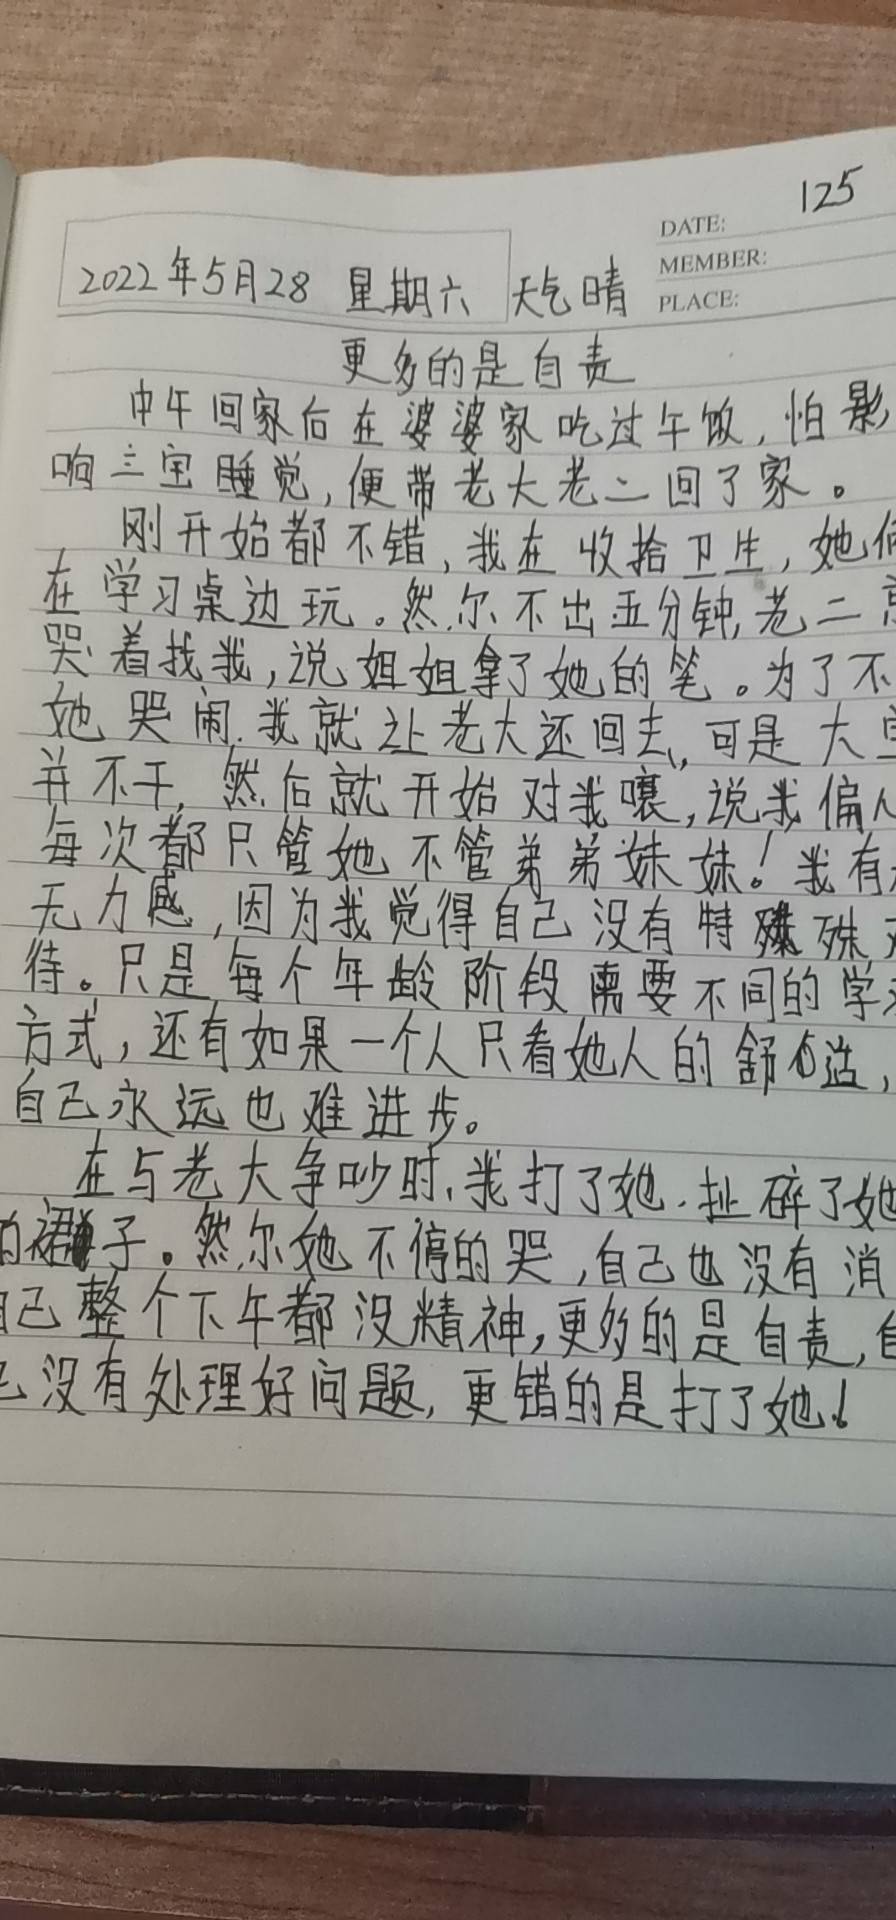 125
DATE:
MEMBER:
PLACE:
2022年5月28 星期六 天气晴
更多的是自责
中午回家后在婆婆家吃过午饭,怕影
响三宝睡觉,便带老大老二回了家。
刚开始都不错,我在收拾卫生,她
在学习桌边玩。然尔不出五分钟,老二
哭着找我,说姐姐拿了她的笔。为了不
她哭闹.我就让老大还回去,可是大
并不干,然后就开始对我嚷,说我偏
每次都只管她不管弟弟妹妹!我有
无力感,因为我觉得自己没有特殊
待。只是每个年龄阶段需要不同的学
方式,还有如果一个人只看她人的舒适,
自己永远也难进步。
在与老大争吵时,我打了她.扯碎了她
的裙子。然尔她不停的哭,自己也没有消
自己整个下午都没精神,更多的是自责,自
己没有处理好问题,更错的是打了她!